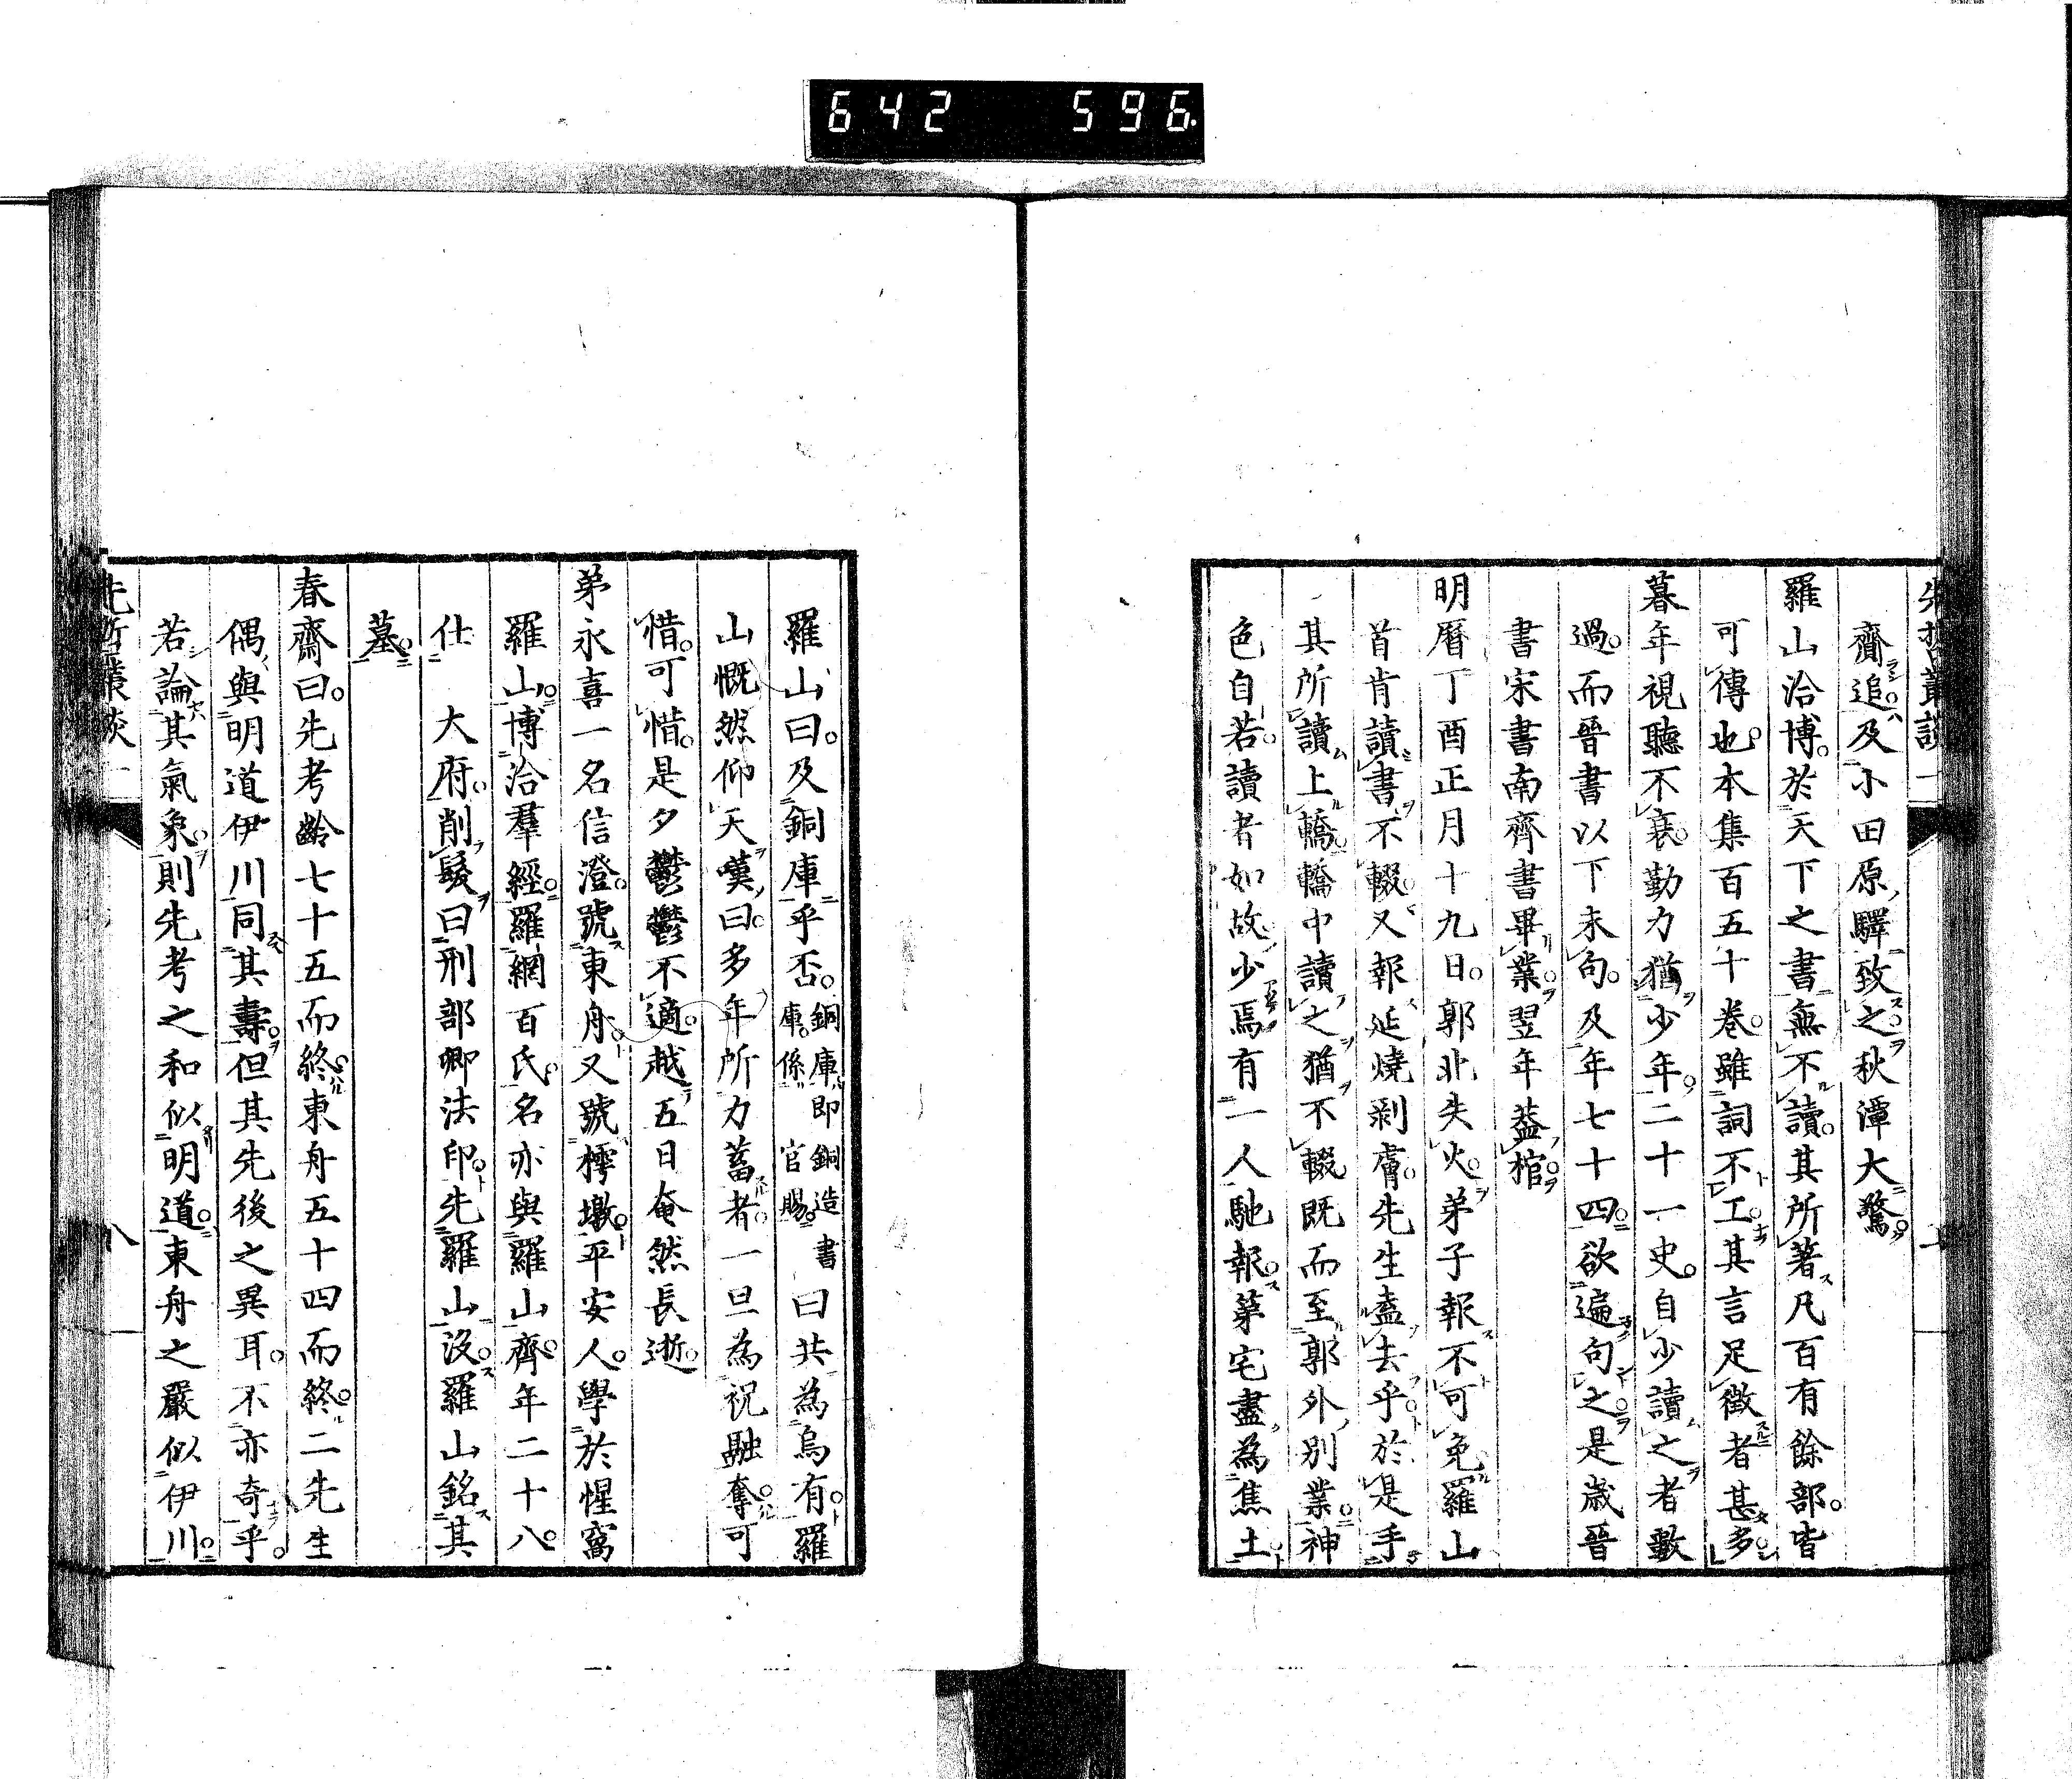 642 596.
先哲叢談一
齎追及小田原驛致之秋潭大驚
羅山洽博於天下之書無不讀其所著凡百有餘部皆
可傳也本集百五十卷雖詞不工其言足徵者甚多
暮年視聽不衰勤力猶少年二十一史自少讀之者數
過而晉書以下未句及年七十四欲遍句之是歲晉
書宋書南齊書畢業翌年葢棺
明曆丁酉正月十九日郭北失火弟子報不可免羅山
首肯讀書不輟又報延燒剝膚先生盍去乎於是手
其所讀上轎轎中讀之猶不輟既而至郭外別業神
色自若讀者如故少焉有一人馳報第宅盡為焦土
羅山曰及銅庫乎否銅庫即銅造書庫係官賜曰共為烏有羅
山慨然仰天嘆曰多年所力蓄者一旦為祝融奪可
惜可惜是夕鬱鬱不適越五日奄然長逝
弟永喜一名信澄號東舟又號樗墩平安人學於惺窩
羅山博洽羣經羅網百氏名亦與羅山齊年二十八
仕 大府削髮曰刑部卿法印先羅山沒羅山銘其
墓
春齋曰先考齡七十五而終東舟五十四而終二先生
偶與明道伊川同其壽但其先後之異耳不亦奇乎
若論其氣象則先考之和似明道東舟之嚴似伊川
先哲叢談一 八